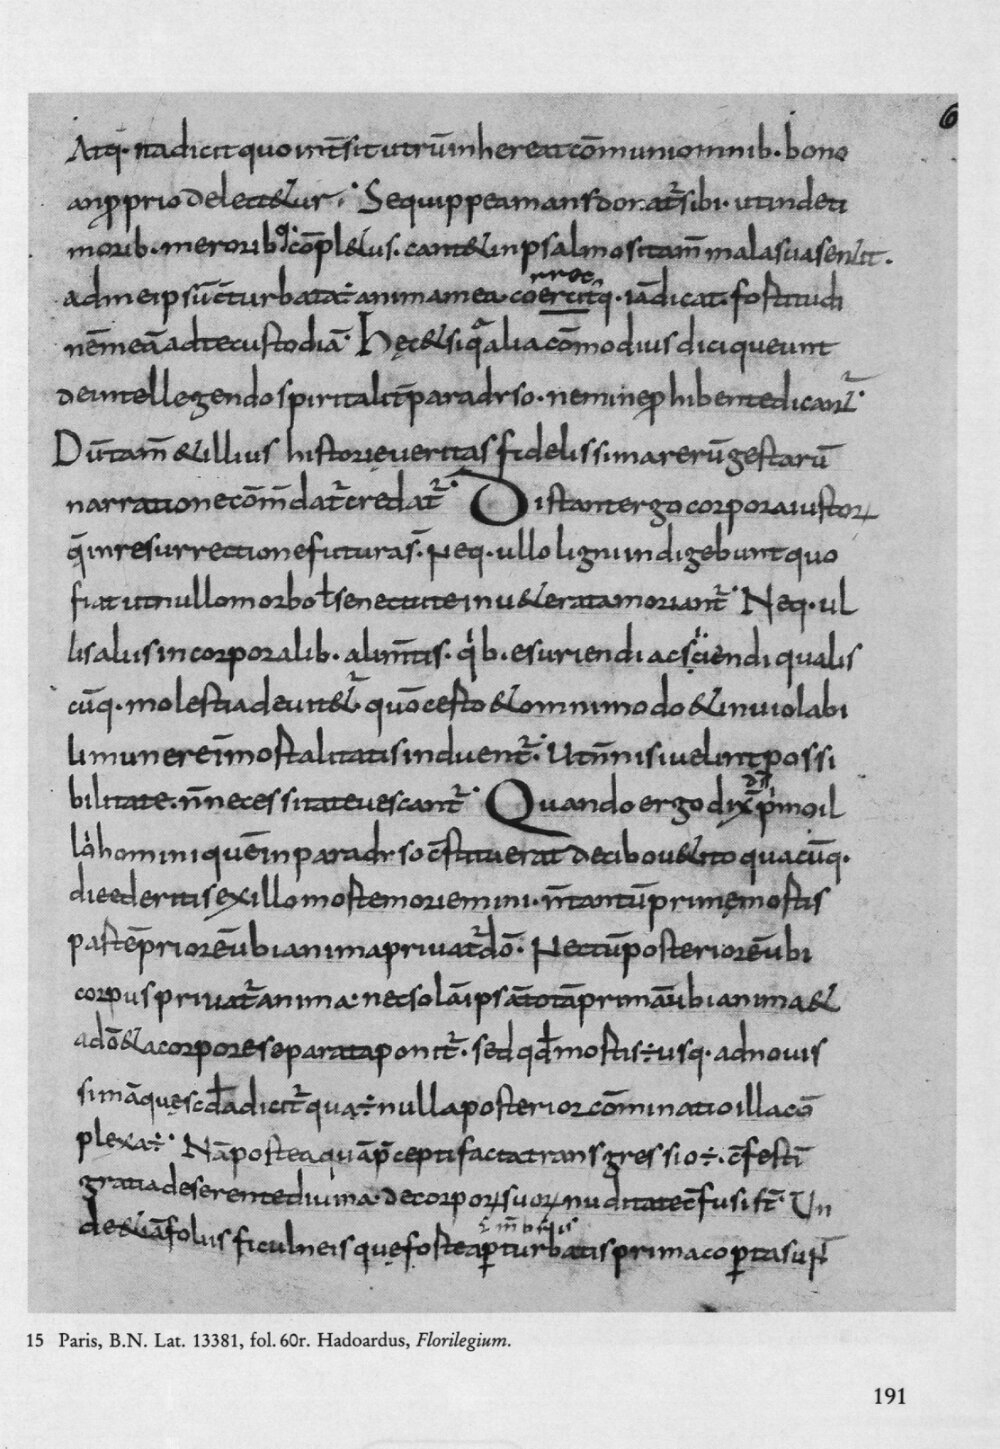 6
Atq· ita dicit quo int̄sit utrū inhereat cōmuni omnib· bono
an ꝓprio delectetur; Seq̣uippe amans donat̄ sibi· ut inde ti
morib· meroribq· cōpletus· cantet in psalmo sitam̄ mala sua senlit·
ad meipsū c̄turbata ÷ anima mea· coercitq· iādicat· fortitudi
nēmeā ad te custodiā· Hęc et siqͣ alia cōmodius dici queunt
de intellegendo spiritalit̄ paradiso· nemine ꝓhibente dicant᷑·
Dū tam̄ et illius historię veritas fidelissima rerū gestarū
narratione cōm̄dat᷑ credat᷑· Distant ergo corpora iustoꝝ
q̄ in resurrectione futura s̄· Neq· ullo ligno indigebunt quo
fiat ut nullo morbo ł senectute inueterata moriant᷑· Neq· ul
lis aliis in corporalib· alim̄tis· qⁱb· esuriendi ac sciendi qualis
cūq· molestia deuitet᷑ quō cesto et omnimodo et inuiolabi
li munere īmortalitatis induent᷑· Ut n̄ nisi uelint possi
bilitate· n̄ necessitate uescant᷑· Quando ergo dix̄ ds̄ pⁱmo il
lo homini quē in paradiso c̄stituerat de cibo uetito quacūq·
die ederitis ex illo morte moriemini· n̄ tantū primę mortis
partē priorē ubi anima priuat᷑ dō· Nec tū posteriorē ubi
corpus priuat᷑ anima· nec solā ipsā totā primā ubi anima et
a dō et a corpore separata ponit᷑· sed qđ mortis ÷ usq· ad nouis
simā quę scđa dicit᷑ qua ÷ nulla posterior cōminatio illa cō
plexa ÷· Nā posteaquā p̄cepti facta transgressio ÷· c̄festī
gratia deserente diuina· de corpoꝝ suoꝝ nuditate c̄fusi st̄· Un
de etiā foliis ficulneis quę forte a ꝑturbatis prima coꝑta sunt
15 Paris, B.N. Lat. 13381, fol. 60r. Hadoardus, Florilegium.
191